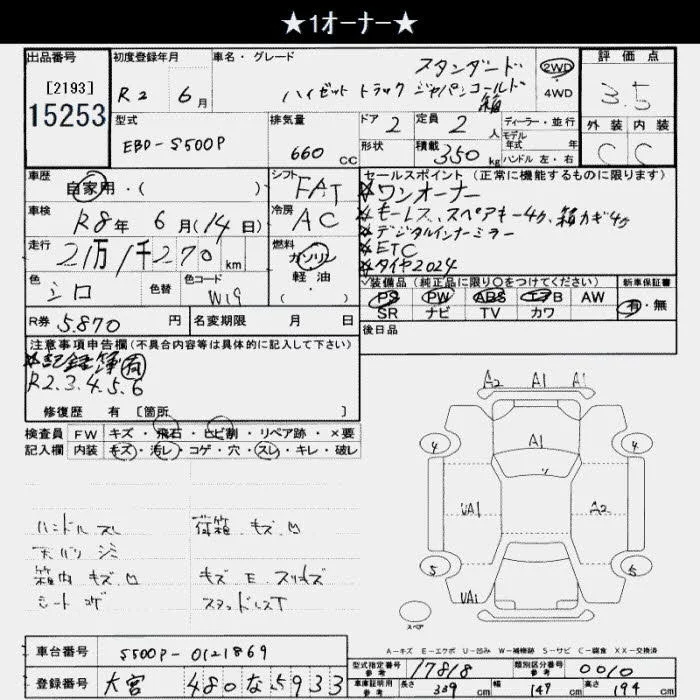 ★1オーナー★
出品番号
[2193]
15253
初度登録年月
R2 年 6 月
車名・グレード
スタンダード
ハイゼット トラック ジャパンコールド
箱
2WD
4WD
評価点
3.5
型式
EBD-S500P
排気量
660 CC
ドア
2
定員
2 人
形状
積載
350 kg
ディーラー・並行
モデル
年式 年
ハンドル 左・右
外装 内装
C C
車歴
自家用・( )
シフト
FAT
車検
R8年 6月(14日)
冷房
AC
走行
21万1千270 km
燃料
ガソリン
軽油
( ・ )
色
シロ
色替
色コード
W19
R券 5.870 円
名変期限 月 日
セールスポイント(正常に機能するものに限ります)
☆ワンオーナー
☆キーレス、スペアキー4ケ、箱カギ4ケ
☆デジタルインナーミラー
☆ETC
☆タイヤ2024
装備品(純正品に限り○をつけてください)
PS PW ABS エアB AW
SR ナビ TV カワ
新車保証書
有・無
後日品
注意事項申告欄(不具合内容等は具体的に記入して下さい)
☆記録簿有
R2.3.4.5.6
修復歴 有 [箇所 ]
検査員
記入欄
FW キズ・飛石・ヒビ割・リペア跡・×要
内装 キズ・汚レ・コゲ・穴・スレ・キレ・破レ
ハンドル スレ
天バリ シミ
箱内 キズ.凹
シート コゲ
荷箱.キズ.凹
キズ.E.スリキズ
A2 A1 A1
4 A1 4
UA1 A2
5 5
UA1
スペア
A-キズ E-エクボ U-凹み W-補修跡 S-サビ C-腐食 XX-交換済
車台番号
S500P-0121869
登録番号
大宮 480 な 5933
型式指定番号
参考
17818
類別区分番号
参考
0010
車庫証明用
参考
長さ 339 cm
幅 147 cm
高さ 194 cm